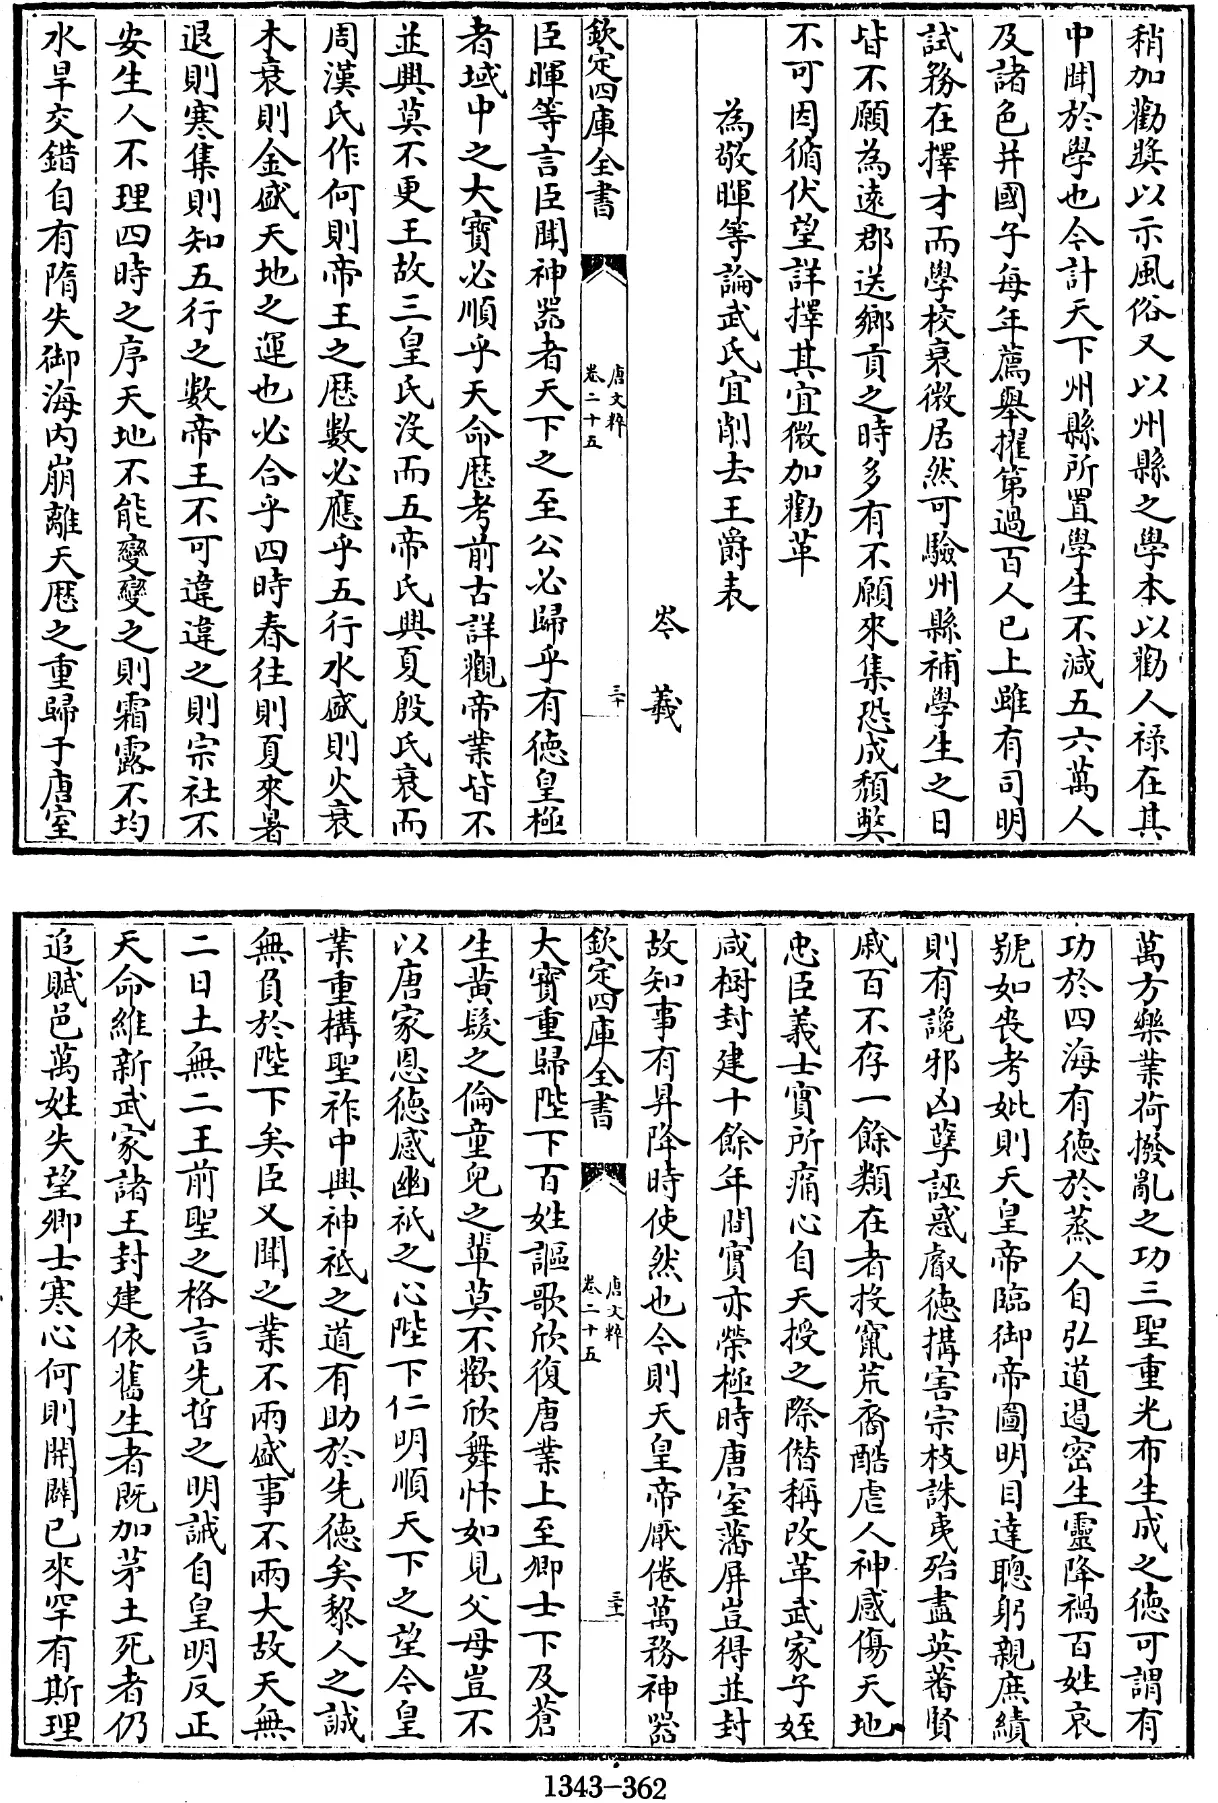 稍加勸奬以示風俗又以州縣之學本以勸人祿在其
中聞於學也今計天下州縣所置學生不減五六萬人
及諸色并國子每年薦舉擢第過百人已上雖有司明
試務在擇才而學校衰微居然可驗州縣補學生之日
皆不願為遠郡送鄉貢之時多有不願來集恐成頽獘
不可因循伏望詳擇其宜微加勸革
為敬暉等論武氏宜削去王爵表
岑羲
欽定四庫全書
唐文粹
卷二十五
三十
臣暉等言臣聞神器者天下之至公必歸乎有德皇極
者域中之大寳必順乎天命厯考前古詳觀帝業皆不
並興莫不更王故三皇氏沒而五帝氏興夏殷氏衰而
周漢氏作何則帝王之厯數必應乎五行水盛則火衰
木衰則金盛天地之運也必合乎四時春往則夏來暑
退則寒集則知五行之數帝王不可違違之則宗社不
安生人不理四時之序天地不能變變之則霜露不均
水旱交錯自有隋失御海内崩離天厯之重歸于唐室
萬方樂業荷撥亂之功三聖重光布生成之德可謂有
功於四海有德於蒸人自弘道遏密生靈降禍百姓哀
號如喪考妣則天皇帝臨御帝圖明目達聰躬親庶績
則有讒邪凶孽誣惑叡德搆害宗枝誅夷殆盡英蕃賢
戚百不存一餘類在者投竄荒裔酷虐人神感傷天地
忠臣義士實所痛心自天授之際僭稱改革武家子姪
咸樹封建十餘年間實亦榮極時唐室藩屏豈得並封
故知事有昇降時使然也今則天皇帝厭倦萬務神器
欽定四庫全書
唐文粹
卷二十五
三十一
大寳重歸陛下百姓謳歌欣復唐業上至卿士下及蒼
生黄髮之倫童兒之輩莫不歡欣舞忭如見父母豈不
以唐家恩德感幽祇之心陛下仁明順天下之望今皇
業重構聖祚中興神祇之道有助於先德矣黎人之誠
無負於陛下矣臣又聞之業不兩盛事不兩大故天無
二日土無二王前聖之格言先哲之明誡自皇明反正
天命維新武家諸王封建依舊生者既加茅土死者仍
追賦邑萬姓失望卿士寒心何則開闢已來罕有斯理
1343-362